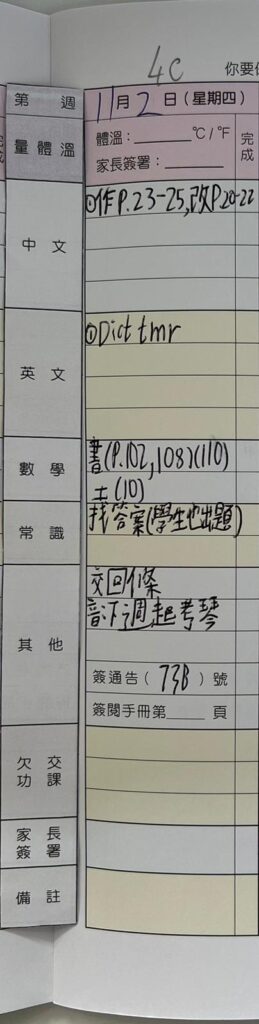 4C
你要
第 週 11月2日(星期四)
量體溫 體溫:______°C/°F 完成
家長簽署:______
中文 ①作P.23-25,改P20-22
英文 ①Dict tmr
數學 書(P.102,108)(110)
(10)
常識 找答案(學生也出題)
其他 交回條
下週起考琴
簽通告(73B)號
簽閱手冊第____頁
欠交功課
家長簽署
備註